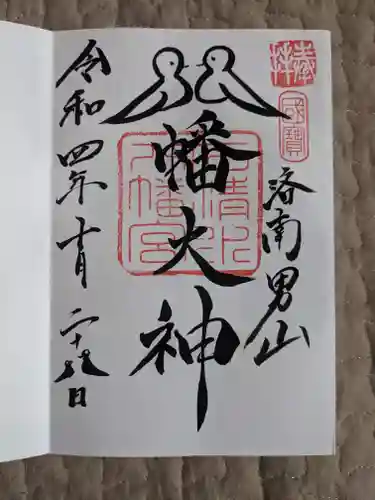 奉拝
国寶
洛南男山
八幡大神
石清水
八幡宮
令和四年十月二十八日